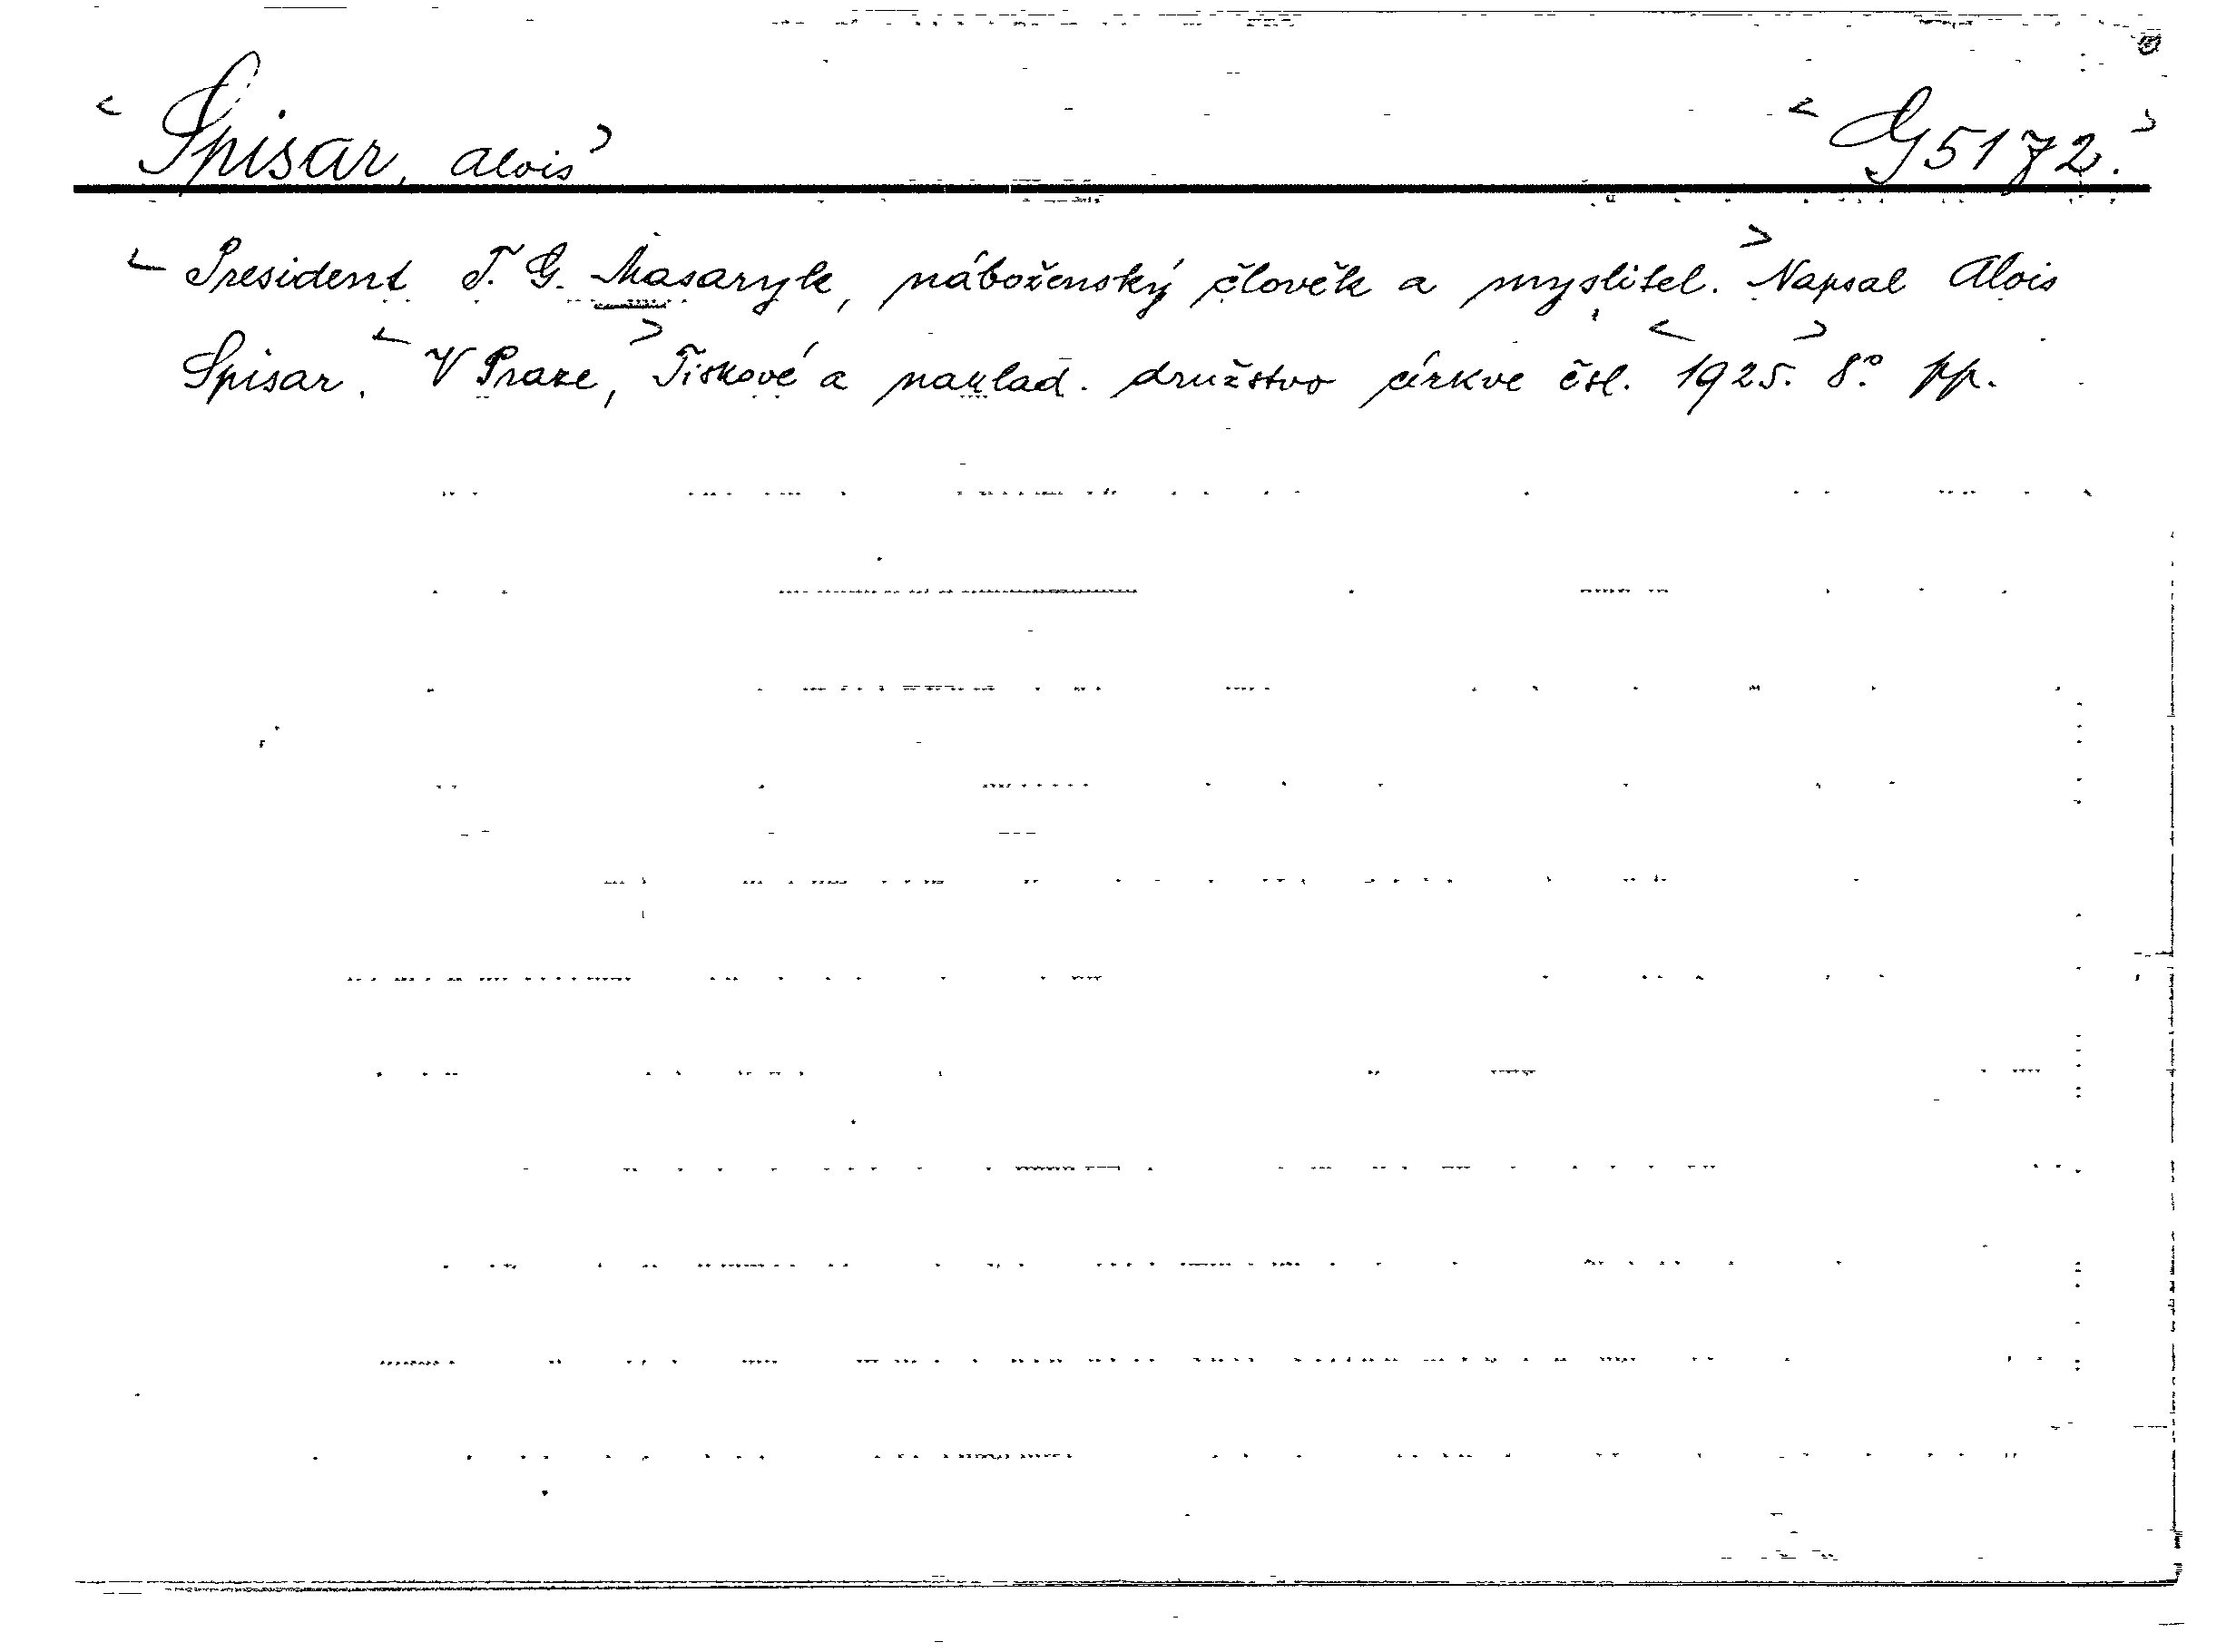 < Spisar, Alois > < G 5172. >
< President T. G. Masaryk, náboženský člověk a myslitel. > Napsal Alois
Spisar. < V Praze, > Tiskové a naklad. družstvo církve čsl. < 1925. > 8° pp.